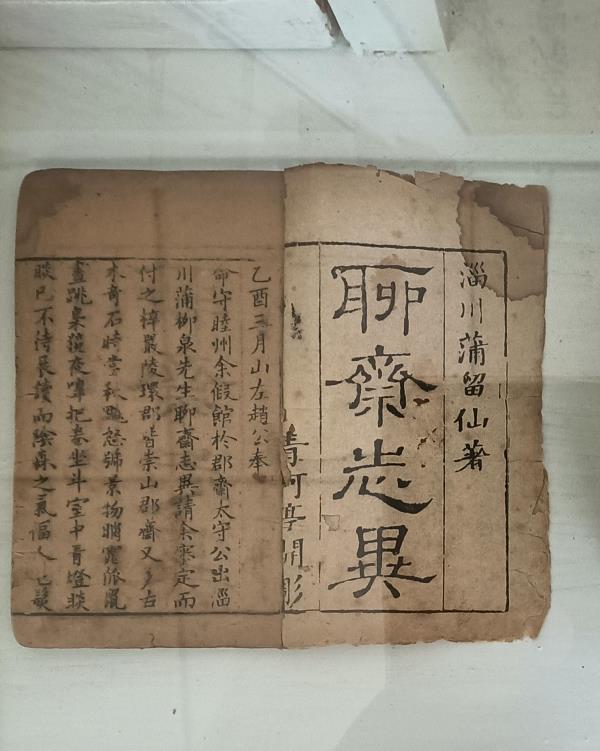 淄川蒲留仙著
聊齋志異
青柯亭開彫
乙酉三月山左趙公奉
命守睦州余假館於郡齋太守公出淄
川蒲柳泉先生聊齋志異請余審定而
付之梓嚴陵環郡皆崇山郡齋又多古
木奇石時當秋飈怒號景物睄窱狐鼠
晝跳梟獍夜嘷把卷坐斗室中青燈睒
睒已不待展讀而陰森之氣偪人毛髮